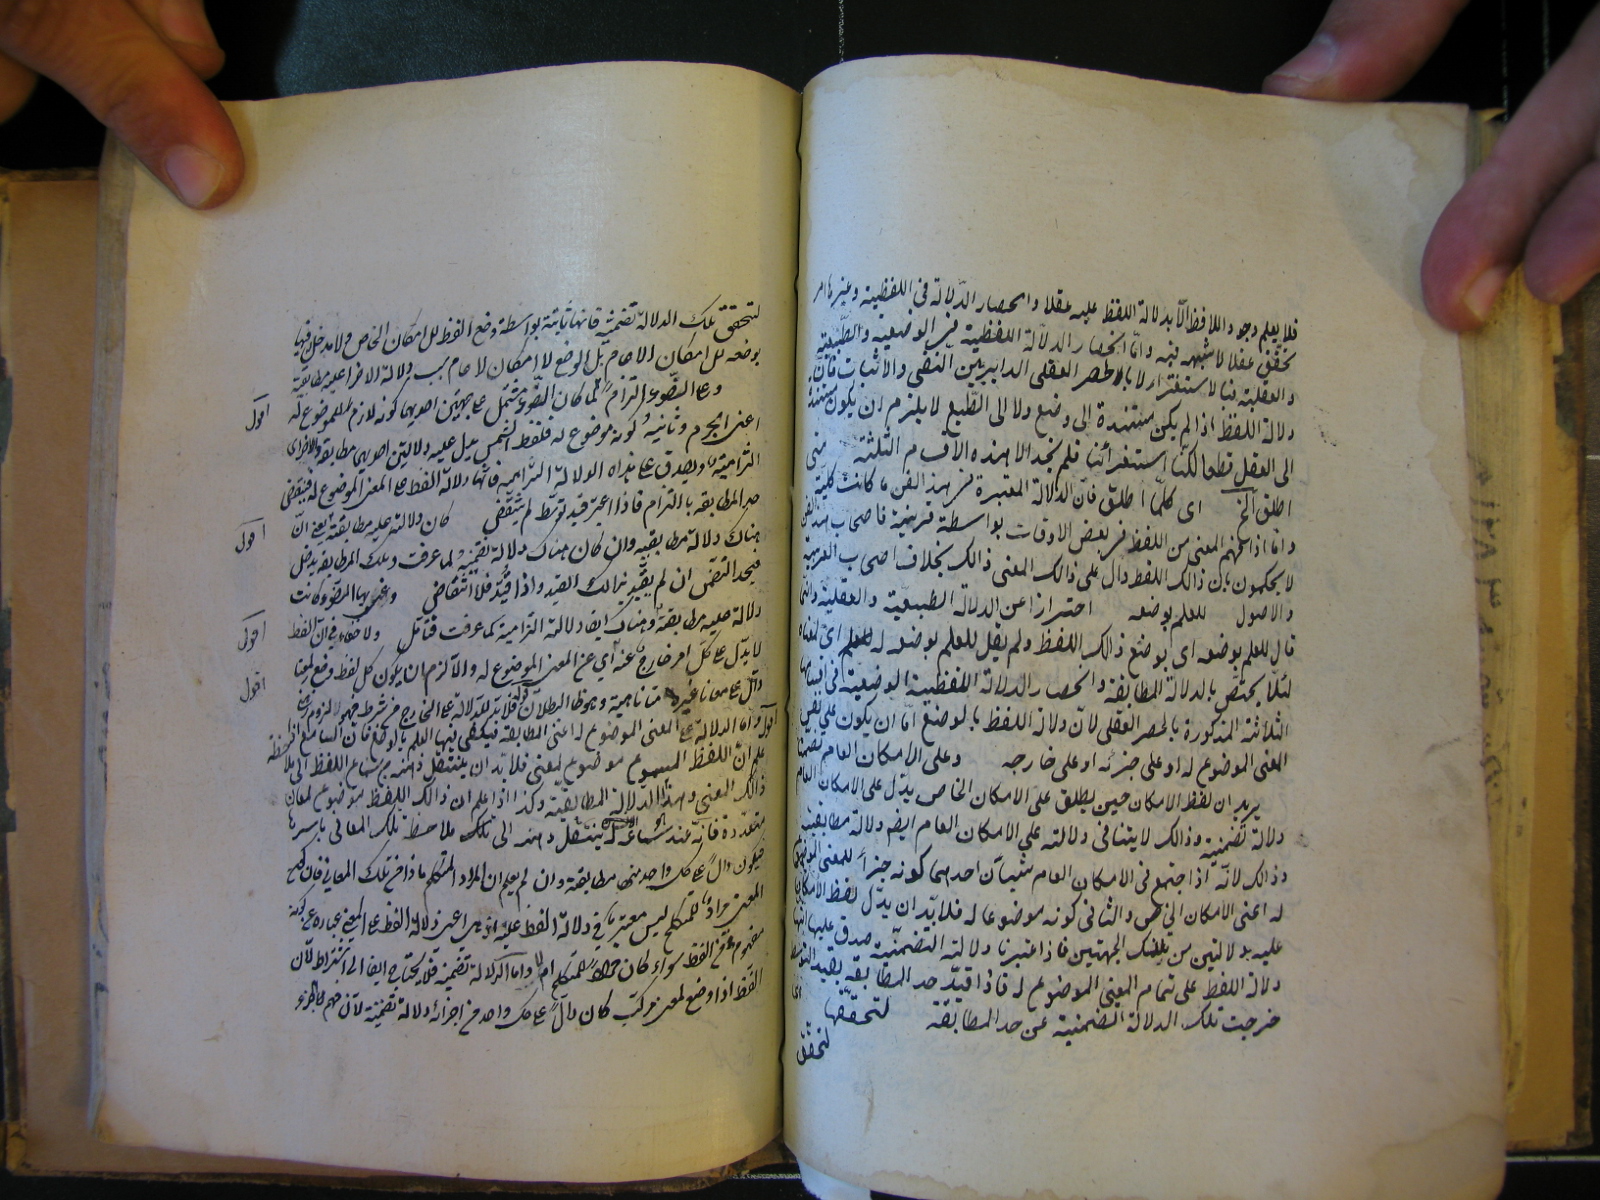 فلا يعلم وجود اللافظ الا بدلالة اللفظ عليه عقلا وانحصار الدلالة في اللفظية وغيرها امر
محقق عقلا لا شبهه فيه وامّا انحصار الدلالة اللفظية في الوضعية والطبيعية
والعقلية فبالاستقراء لا بالحصر العقلى الداير بين النفى والاثبات فانّ
دلالة اللفظ اذا لم يكن مستندة الى وضع ولا الى الطبع لا يلزم ان يكون مستندة
الى العقل قطعا لكنّا استقرائنا فلم نجد الا هذه الاقسام الثلثة متى
اطلق الخ اى كلّما اطلق فانّ الدلالة المعتبرة فى هذا الفن ما كانت كلية
وامّا اذا فهم المعنى من اللفظ فى بعض الاوقات بواسطة قرينة فاصحاب هذا الفن
لا يحكمون بان ذالك اللفظ دال على ذالك المعنى بخلاف اصحاب العربية
والاصول للعلم بوضعه احترازا عن الدلالة الطبيعية والعقلية وانما
قال للعلم بوضعه اى بوضع ذالك اللفظ ولم يقل للعلم بوضعه له اى لمعناه
لئلّا يختص بالدلالة المطابقة وانحصار الدلالة اللفظية الوضعية في اقسامها
الثلاثة المذكورة بالحصر العقلى لانّ دلالة اللفظ بالوضع امّا ان يكون على نفس
المعنى الموضوع له او على جزئه او على خارجه وعلى الامكان العام تضمنا
يريد ان لفظ الامكان حين يطلق على الامكان الخاص يدّل على الامكان العام
دلالة تضمنية وذالك لا يتنافى دلالته على الامكان العام ايضا دلالة مطابقية
وذالك لانّه اذا اجتمع في الامكان العام شيئان احدهما كونه جزأ للمعنى الموضوع
له اعنى الامكان الخاص والثانى كونه موضوعا له فلا بدّ ان يدّل لفظ الامكان
عليه بدلالتين من تلك الجهتين فاذا اعتبرنا دلالته التضمنيّة صدق عليها انّها
دلالة اللفظ على تمام المعنى الموضوع له فاذا قيدّ حد المطابقة بقيد التوسط
خرجت تلك الدلالة التضمنية عن حد المطابقة لتحققها اى
لتحقق
لتحقق تلك الدلالة تضمنية فانها ثابتة بواسطة وضع اللفظ للامكان الخاص ولا مدخل فيها
بوضعه للامكان الاعام بل الوضع لا امكان لا عام سبب دلالة الاخرا عليه مطابقة
وعلى الضّوء التزاماً لما كان الضّوء مشتمل على جهتين احديهما كونه لازم للموضوع له اقول
اعنى الجرم وثانيه كونه موضوع له فلفظ الشمس يدل عليه دلالتين احديهما مطابقة والاخرى
التزامية ويصدق على هذاه الدلالة التزاميه فانّها دلالة اللفظ على المعنى الموضوع له فينتقض
حد المطابقه بالتزام فاذا اعتبر قيد توسّط لم ينتقض كان دلالته عليه مطابقة يعنى انّ اقول
هناك دلالة مطابقيه وان كان هناك دلالة تضمنيه لما عرفت وتلك المطابقه يدخل
فيحد التضمّن ان لم يقيّد بذالك القيد واذا قيّد فلا انتقاض وعنى بها الضّوء كانت
دلالة عليه مطابقة وهناك ايضا دلالة التزامية كما عرفت فتأمّل ولا خفاء فى انّ اللفظ اقول
لا يدّل على كلّ امر خارج عنه اى عن المعنى الموضوع له والّا لزم ان يكون كل لفظ وضع لمعنا
دالّ على معانا غيره متناهية وهو ظاهر البطلان فلا بدّ للدلالة على الخارج من شرط وهو اللزوم اقول
اقول وامّا الدلالة على المعنى الموضوع له اعنى المطابقة فيكفى فيها العلم بالوضع فان السامع اذا
علم انّ اللفظ المسموع موضوع لمعنى فلا بدّ ان ينتقل ذهنه من سماع اللفظ الى ملاحظة
ذالك المعنى وهذا الدلالة المطابقية وكذا اذا علم ان ذالك اللفظ موضوع لمعان
متعدّدة فانّه عند سماعه ينتقل ذهنه الى ملاحظة تلك المعانى باسرها
فيكون دالّاً على كل واحد منها مطابقة وان لم يعلم ان المراد المتكلم ماذا من تلك المعانى فان كون
المعنى مراداً للمتكلم ليس معتبرا في دلالة اللفظ عليه اذ هى اعنى دلالة اللفظ على المعنى عبارة عن كونه
مفهوم من اللفظ سواء كان مراد للمتكلم ام لا وامّا الدلالة تضمنية فلا يحتاج ايضا الى اشتراط لانّ
اللفظ اذا وضع لمعنى مركّب كان دالّاً على كل واحد من اجزائه دلالة تضمنية لانّ فهم الجزء